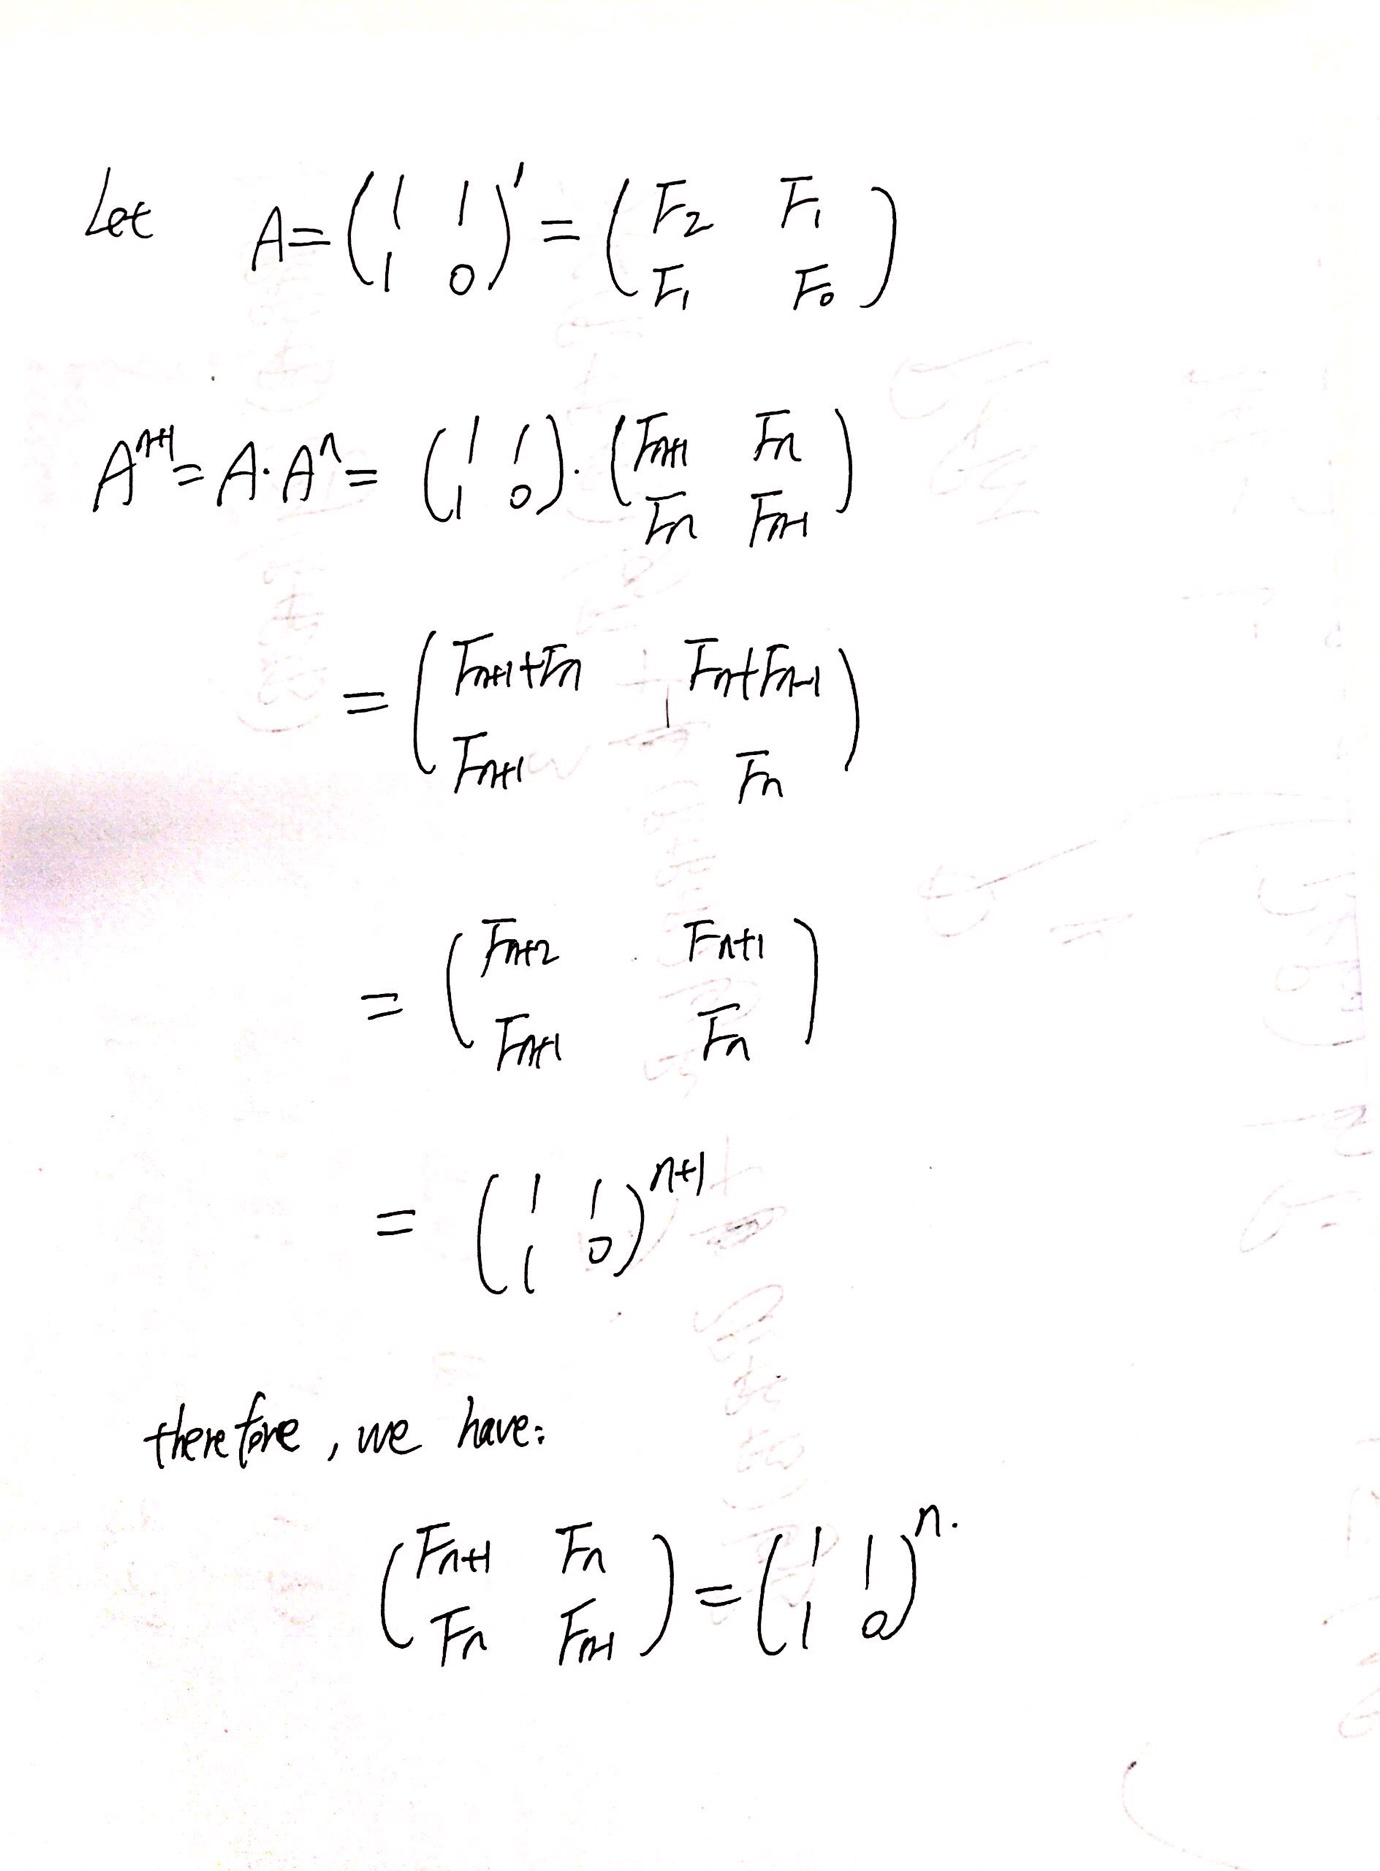 Let A = (1 1; 1 0)^1 = (F_2 F_1; F_1 F_0)
A^{n+1} = A · A^n = (1 1; 1 0) · (F_{n+1} F_n; F_n F_{n-1})
= (F_{n+1}+F_n F_n+F_{n-1}; F_{n+1} F_n)
= (F_{n+2} F_{n+1}; F_{n+1} F_n)
= (1 1; 1 0)^{n+1}
therefore, we have:
(F_{n+1} F_n; F_n F_{n-1}) = (1 1; 1 0)^n.